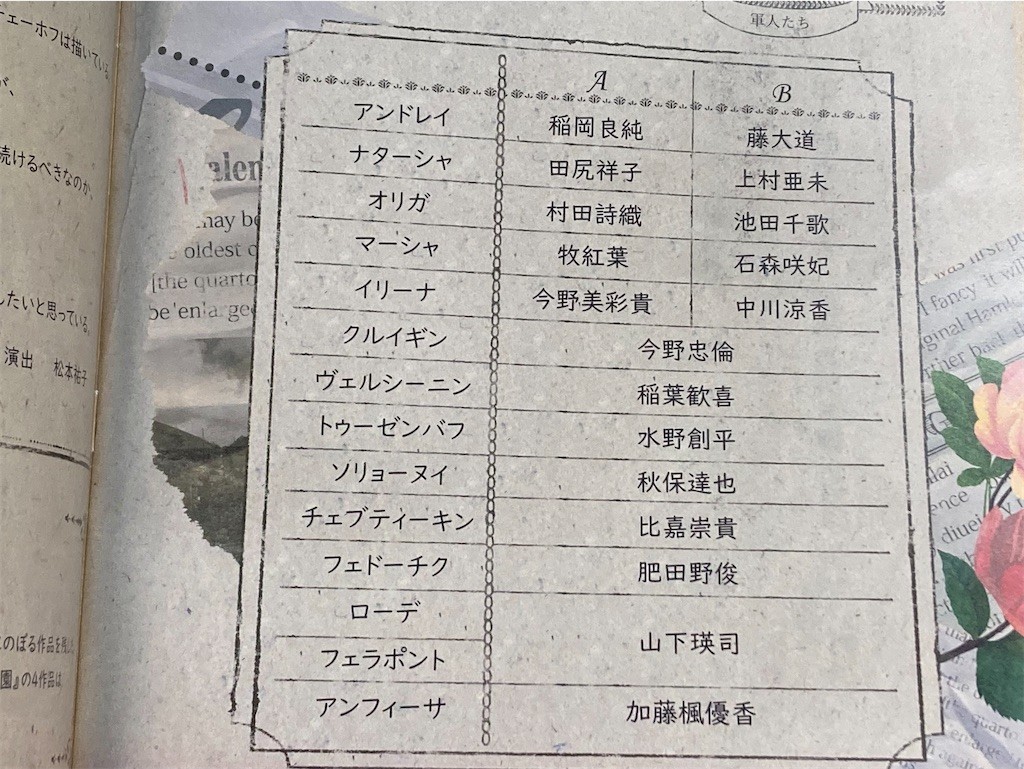 チェーホフは描いている
が、
続けるべきなのか、
したいと思っている。
演出 松本祐子
のぼる作品を残した
園』の4作品は
軍人たち
A B
アンドレイ 稲岡良純 藤大道
ナターシャ 田尻祥子 上村亜未
オリガ 村田詩織 池田千歌
マーシャ 牧紅葉 石森咲妃
イリーナ 今野美彩貴 中川涼香
クルイギン 今野忠倫
ヴェルシーニン 稲葉歓喜
トゥーゼンバフ 水野創平
ソリョーヌイ 秋保達也
チェブティーキン 比嘉崇貴
フェドーチク 肥田野俊
ローデ 山下瑛司
フェラポント
アンフィーサ 加藤楓優香
may be
oldest
the quarto
be enlarged
was first
I fancy it will